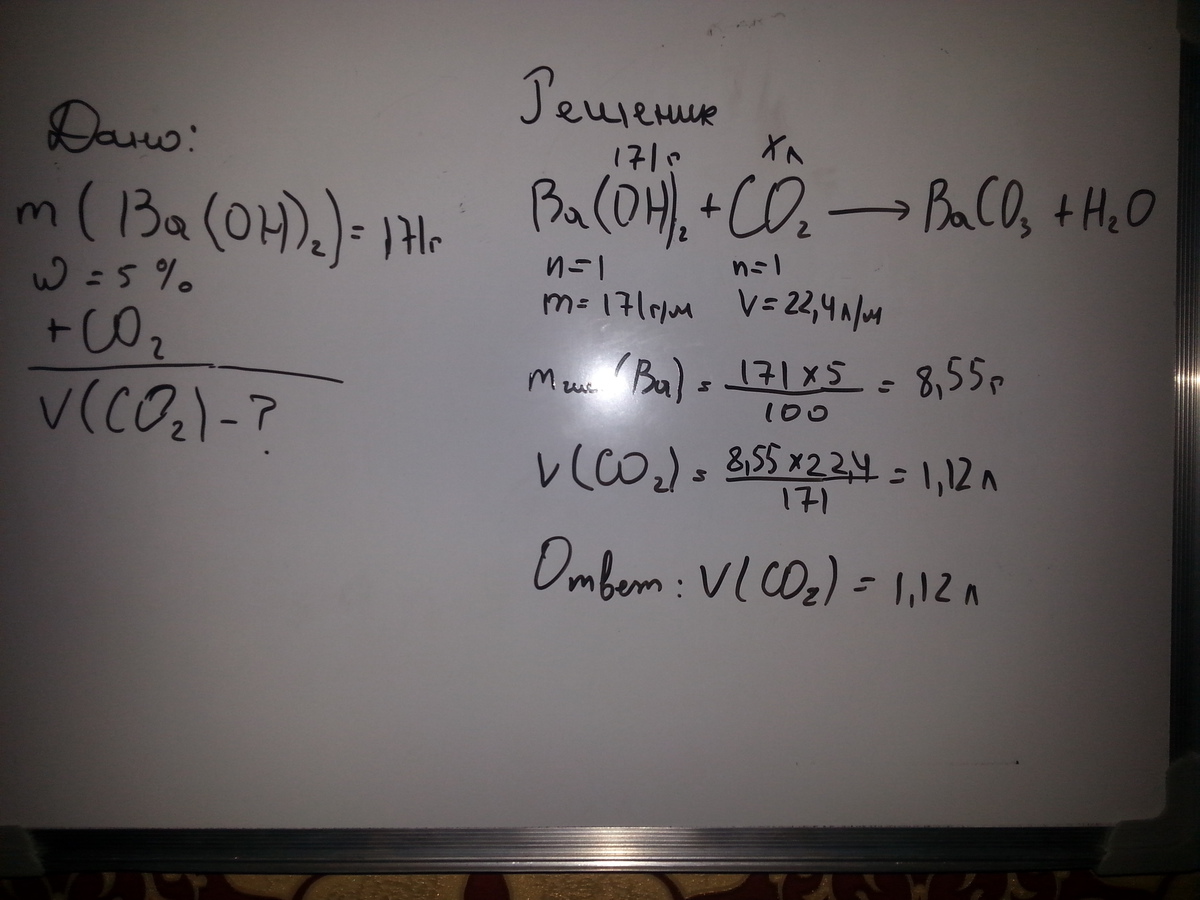 Дано:
m(Ba(OH)₂)=171г
ω=5%
+CO₂
V(CO₂)-?
Решение
171г xл
Ba(OH)₂+CO₂→BaCO₃+H₂O
n=1 n=1
m=171г/м V=22,4л/м
m (Ba)=171×5/100=8,55г
V(CO₂)=8,55×22,4/171=1,12л
Ответ: V(CO₂)=1,12л